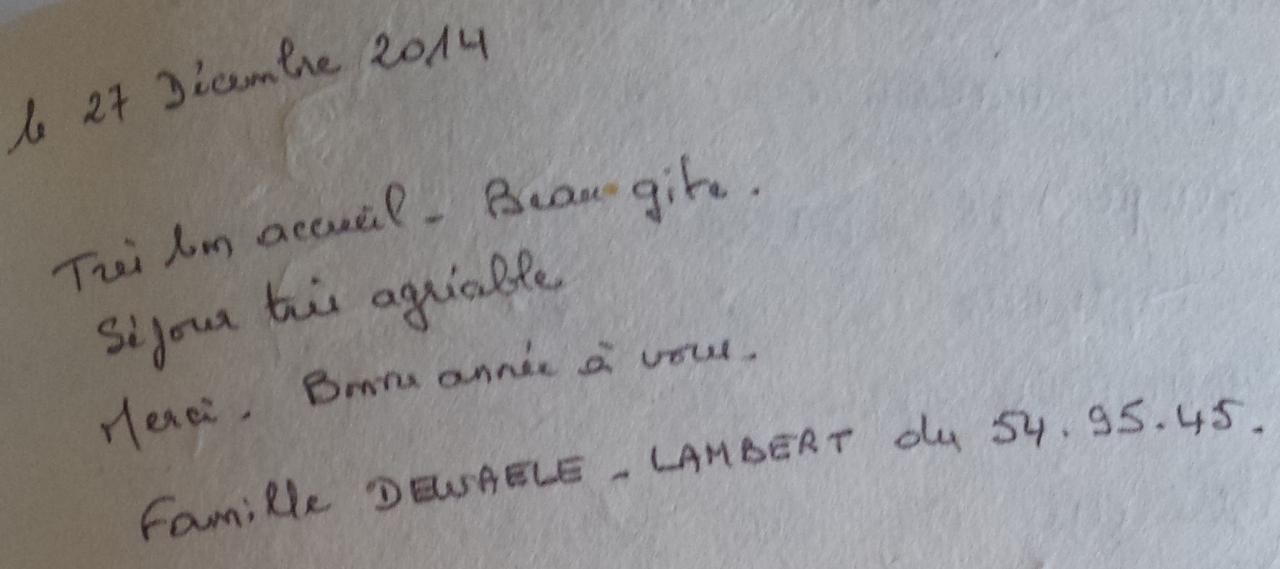 le 27 Décembre 2014
Très bon accueil - Beau gite.
Séjour très agréable
Merci. Bonne année à vous.
Famille DEWAELE - LAMBERT du 54.95.45.